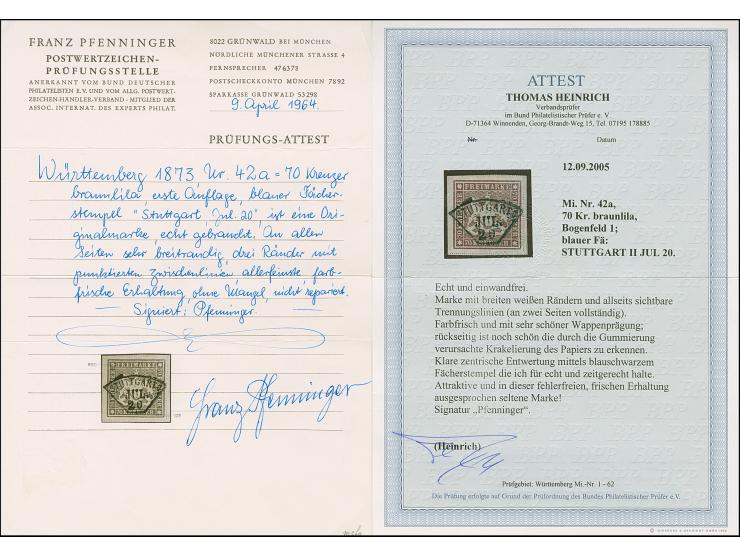 FRANZ PFENNINGER
POSTWERTZEICHEN-
PRÜFUNGSSTELLE
ANERKANNT VOM BUND DEUTSCHER
PHILATELISTEN E.V. UND VOM ALLG. POSTWERT-
ZEICHEN-HÄNDLER-VERBAND - MITGLIED DER
ASSOC. INTERNAT. DES EXPERTS PHILAT.
8022 GRÜNWALD BEI MÜNCHEN
NÖRDLICHE MÜNCHENER STRASSE 4
FERNSPRECHER 476378
POSTSCHECKKONTO MÜNCHEN 7892
SPARKASSE GRÜNWALD 53298
9. April 1964.
PRÜFUNGS-ATTEST
Württemberg 1873 Nr. 42a = 70 Kreuzer
braunlila, erste Auflage, blauer Fächer-
stempel "Stuttgart, Jul. 20", ist eine Ori-
ginalmarke, echt gebraucht. An allen
Seiten sehr breitrandig, drei Ränder mit
punktierten Zwischenlinien, allerfeinste farb-
frische Erhaltung, ohne Mangel, nicht repariert.
Signiert: Pfenninger.
STUTTGART
JUL.
20
Franz Pfenninger
ATTEST
THOMAS HEINRICH
Verbandsprüfer
im Bund Philatelistischer Prüfer e. V.
D-71364 Winnenden, Georg-Brandt-Weg 15, Tel. 07195 178885
Nr.
Datum
12.09.2005
FREIMARKE
STUTTGART
JUL
20
Mi. Nr. 42a,
70 Kr. braunlila,
Bogenfeld 1;
blauer Fä:
STUTTGART II JUL 20.
Echt und einwandfrei.
Marke mit breiten weißen Rändern und allseits sichtbare
Trennungslinien (an zwei Seiten vollständig).
Farbfrisch und mit sehr schöner Wappenprägung;
rückseitig ist noch schön die durch die Gummierung
verursachte Krakelierung des Papiers zu erkennen.
Klare zentrische Entwertung mittels blauschwarzem
Fächerstempel die ich für echt und zeitgerecht halte.
Attraktive und in dieser fehlerfreien, frischen Erhaltung
ausgesprochen seltene Marke!
Signatur „Pfenninger".
(Heinrich)
Prüfgebiet: Württemberg Mi.-Nr. 1 - 62
Die Prüfung erfolgte auf Grund der Prüfordnung des Bundes Philatelistischer Prüfer e.V.